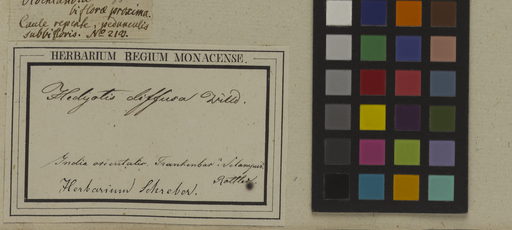 bifloræ proxima.
Caule repente, pedunculis
subbifloris. No 212.
HERBARIUM REGIUM MONACENSE.
Hedyotis diffusa Willd.
India orientalis. Trankenbar
Rottler.
Herbarium Schreber.